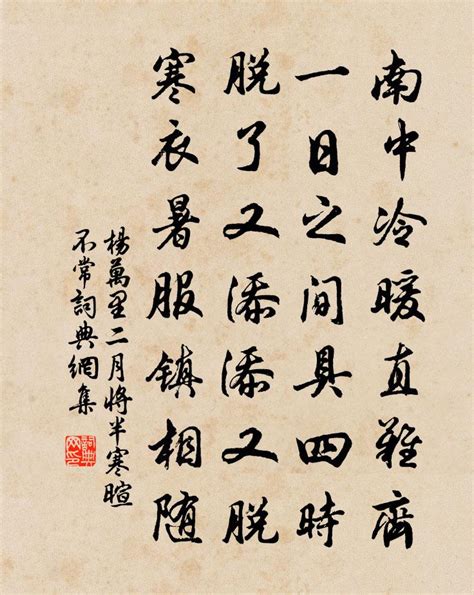 南中冷暖直難齊
一日之间具四時
脱了又添添又脱
寒衣暑服鎮相随
楊萬里二月將半寒暄
不常詞典網集